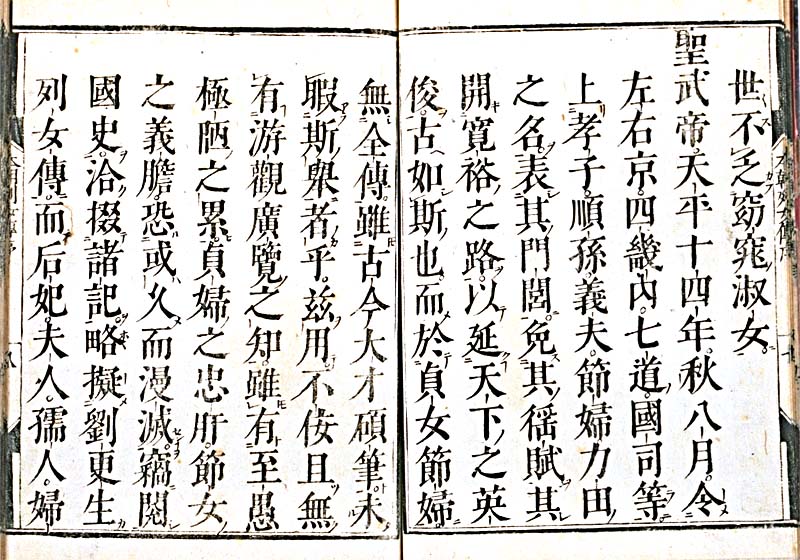 世不乏窈窕淑女
聖武帝天平十四年秋八月令
左右京四畿內七道國司等
上孝子順孫義夫節婦力田
之名表其門閭免其徭賦其
開寬裕之路以延天下之英
俊古如斯也而於貞女節婦
無全傳雖古今大才碩筆未
暇斯舉者乎茲用不佞且無
有游觀廣覽之知雖有至愚
極陋之累貞婦之忠肝節女
之義膽恐或久而漫滅竊閱
國史洽掇諸記略擬劉更生
列女傳而后妃夫人孺人婦